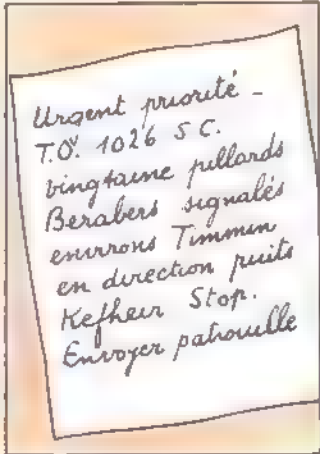 Urgent priorité -
T.O. 1026 S C.
vingtaine pillards
Berabers signalés
environs Timmin
en direction puits
Kefheir Stop.
Envoyer patrouille